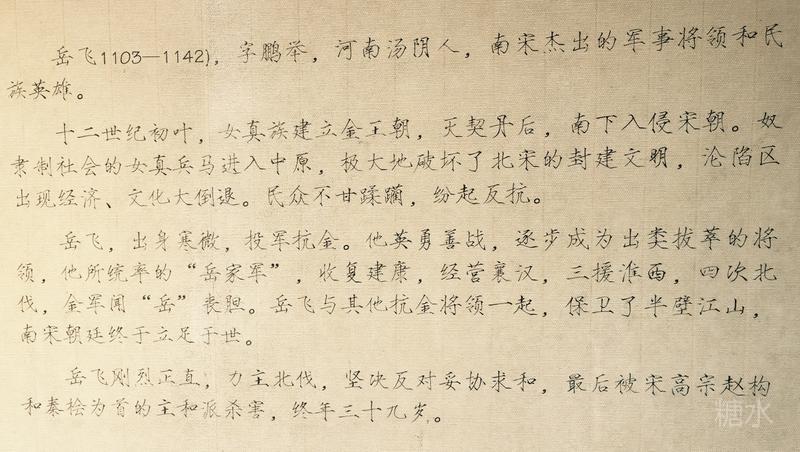 岳飞1103—1142)，字鹏举，河南汤阴人，南宋杰出的军事将领和民
族英雄。
十二世纪初叶，女真族建立金王朝，灭契丹后，南下入侵宋朝。奴
隶制社会的女真兵马进入中原，极大地破坏了北宋的封建文明，沦陷区
出现经济、文化大倒退。民众不甘蹂躏，纷起反抗。
岳飞，出身寒微，投军抗金。他英勇善战，逐步成为出类拔萃的将
领，他所统率的“岳家军”，收复建康，经营襄汉，三援淮西，四次北
伐，金军闻“岳”丧胆。岳飞与其他抗金将领一起，保卫了半壁江山，
南宋朝廷终于立足于世。
岳飞刚烈正直，力主北伐，坚决反对妥协求和，最后被宋高宗赵构
和秦桧为首的主和派杀害，终年三十九岁。
糖水